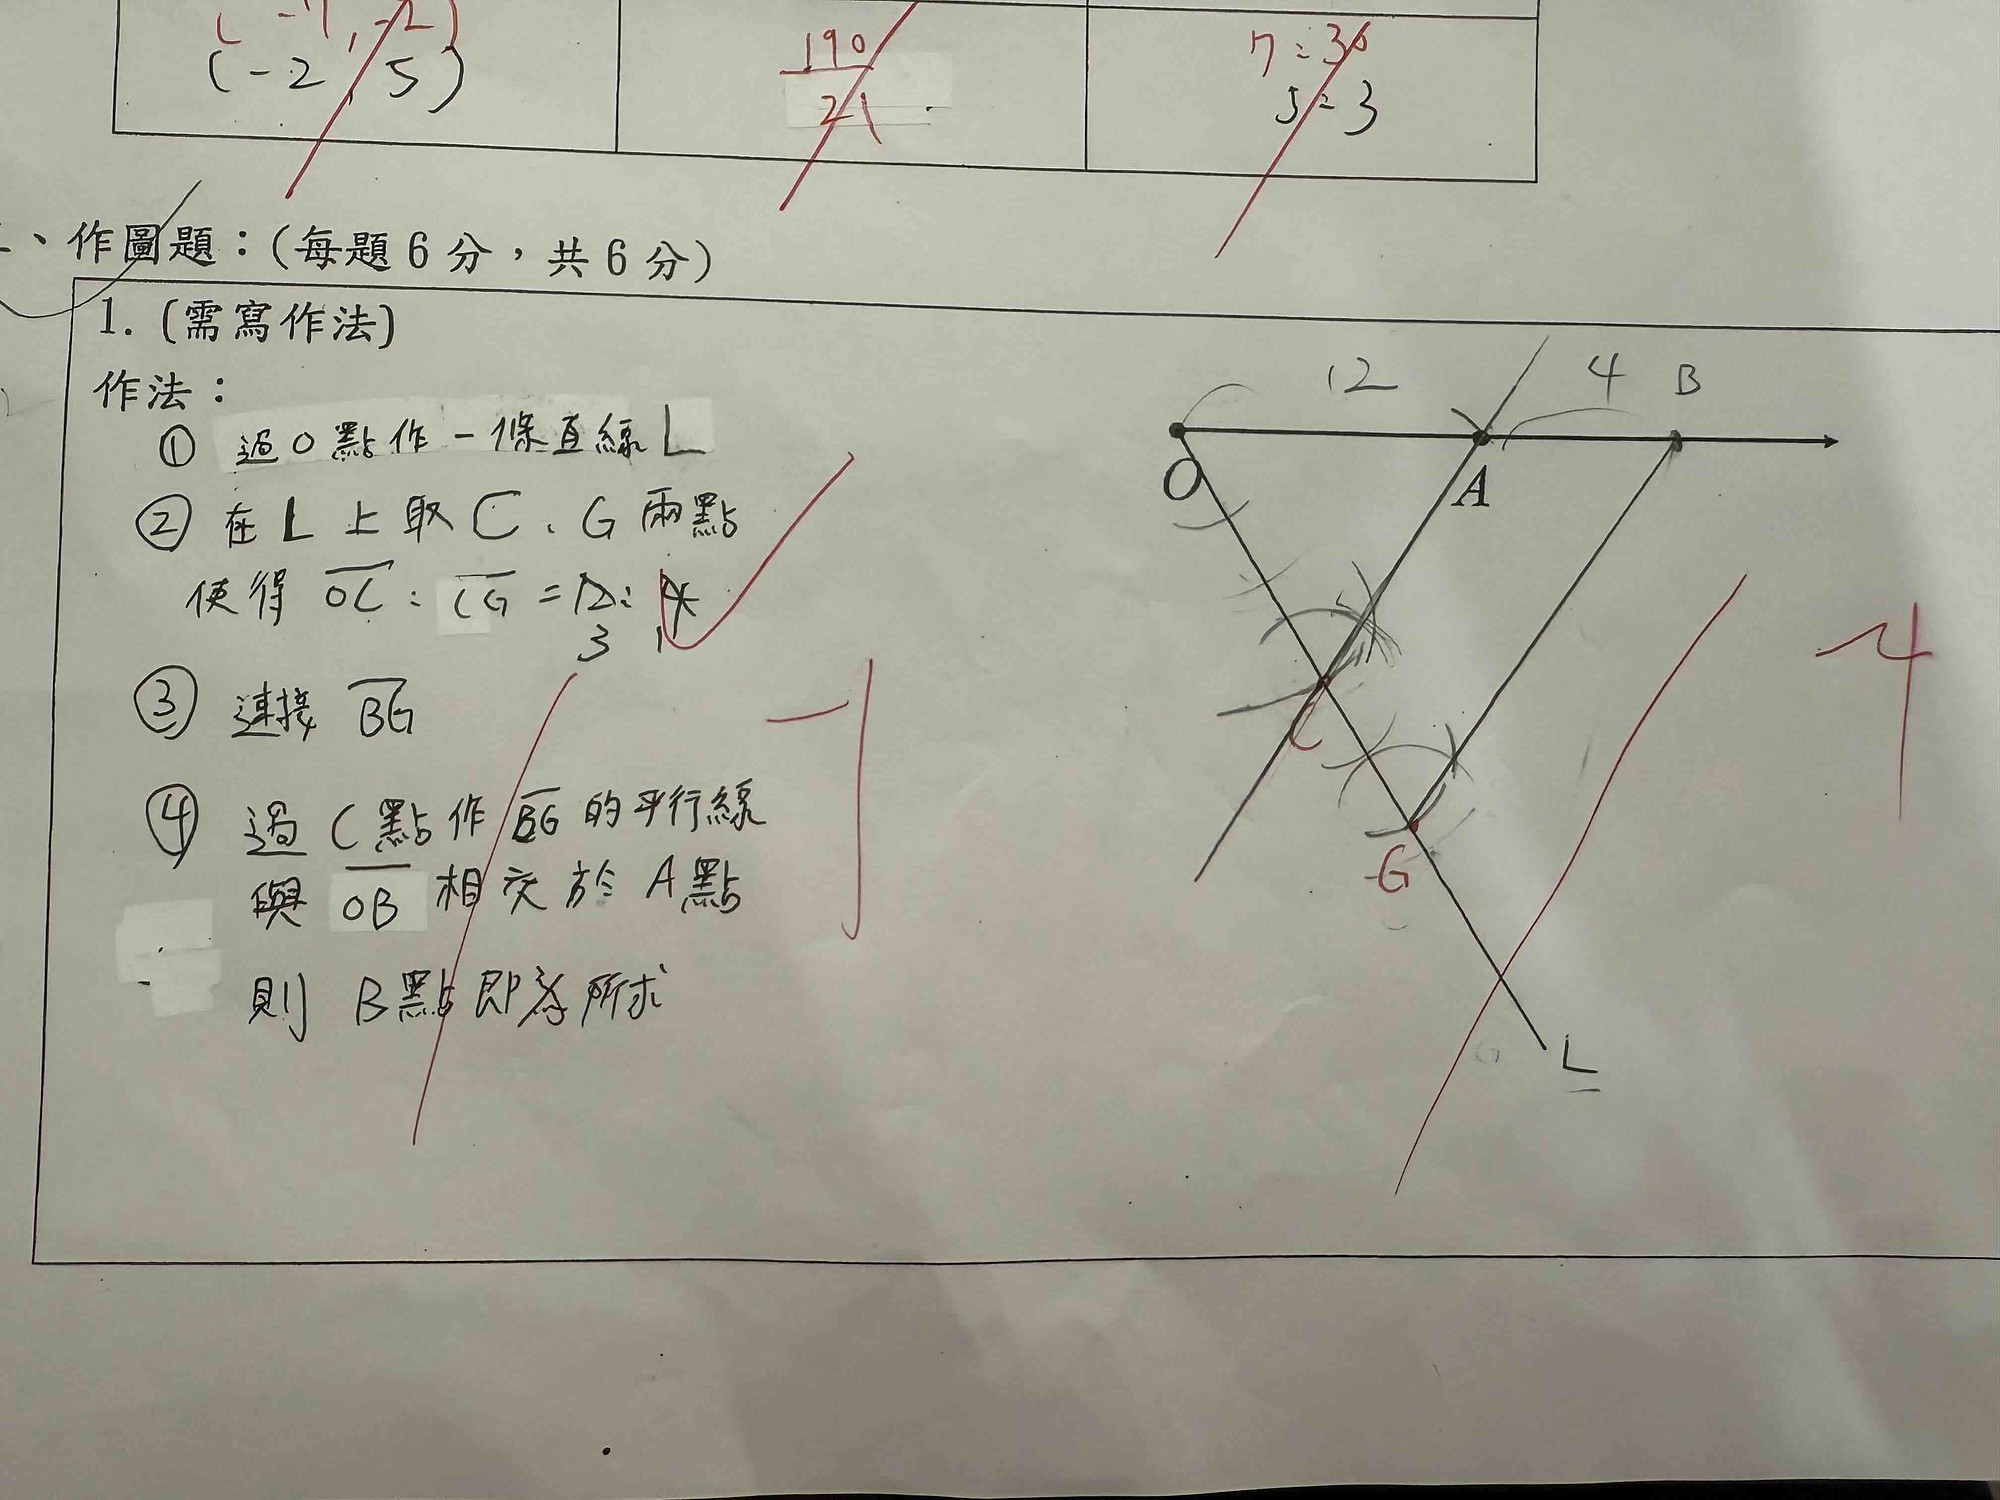 (-7, -2)
(-2, 5)
190
21
7:36
5:3
、作圖題：(每題6分，共6分)
1. (需寫作法)
作法：
① 過O點作一條直線L
② 在L上取C、G兩點
使得 OC : CG = 12 : 4
3 1
③ 連接 BG
④ 過C點作BG的平行線
與 OB 相交於A點
則 B點即為所求
12 4 B
O A
C
G
L
-1
-4